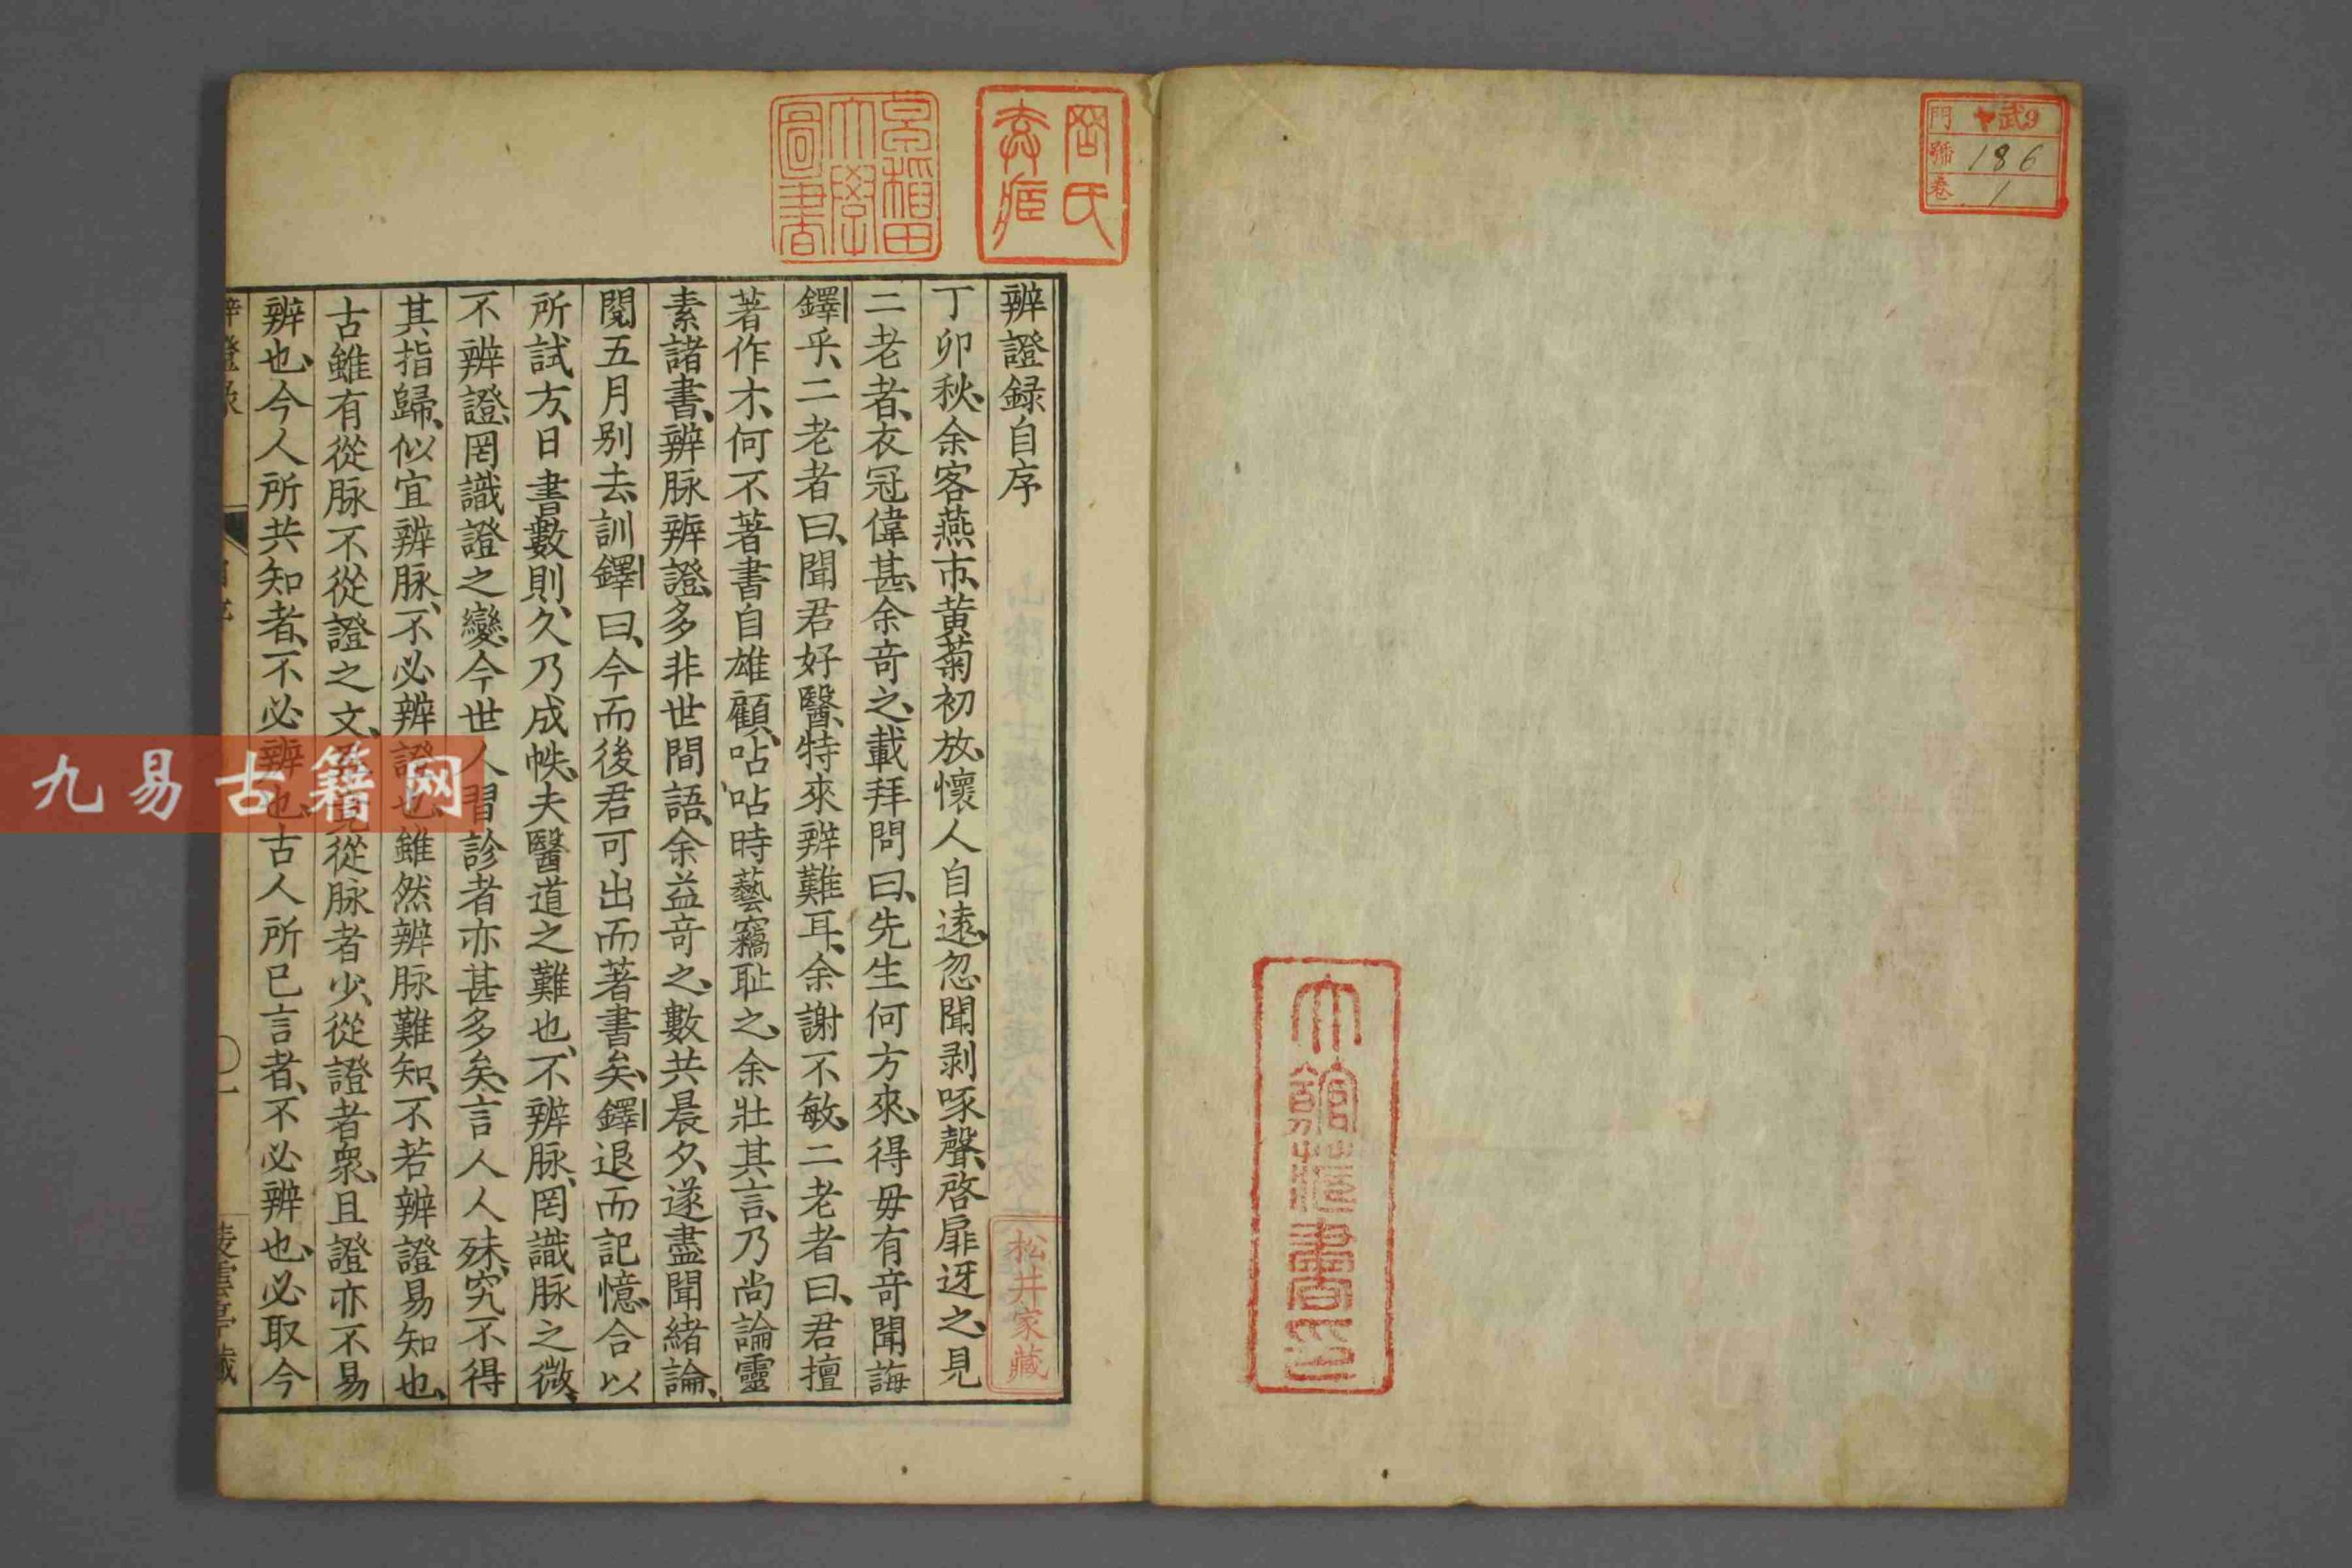 武9
門
號 186
卷 1
大館藏書印
早稲田大學圖書
辨證録自序
松井家藏
丁卯秋、余客燕市、黄菊初放、懷人自遠、忽聞剥啄聲、啓扉迓之、見
二老者、衣冠偉甚、余竒之、載拜問曰、先生何方來、得毋有竒聞誨
鐸乎、二老者曰、聞君好醫、特來辨難耳、余謝不敏、二老者曰、君擅
著作才、何不著書自雄、顧呫呫時藝竊耻之、余壯其言、乃尚論靈
素諸書、辨脉辨證、多非世間語、余益竒之、數共晨夕、遂盡聞緒論、
閱五月别去、訓鐸曰、今而後君可出而著書矣、鐸退而記憶、合以
所試方、日書數則、久乃成帙、夫醫道之難也、不辨脉、罔識脉之微、
不辨證、罔識證之變、今世人習診者亦甚多矣、言人人殊、究不得
其指歸、似宜辨脉、不必辨證也、雖然辨脉難知、不若辨證易知也、
古雖有從脉不從證之文、從脉者少、從證者衆、且證亦不易
辨也、今人所共知者、不必辨也、古人所已言者、不必辨也、必取今
九易古籍网